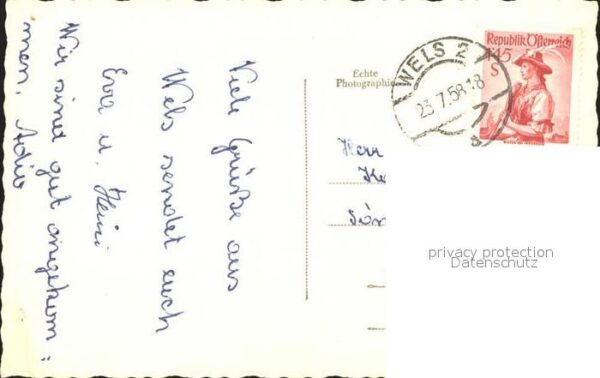 Viele Grüße aus
Wels sendet euch
Eva u. Heini
Wir sind gut angekom=
men, Adio
Echte
Photographie
WELS 2
23.7.58.18
a
Republik Österreich
1.45
S
Herr
privacy protection
Datenschutz